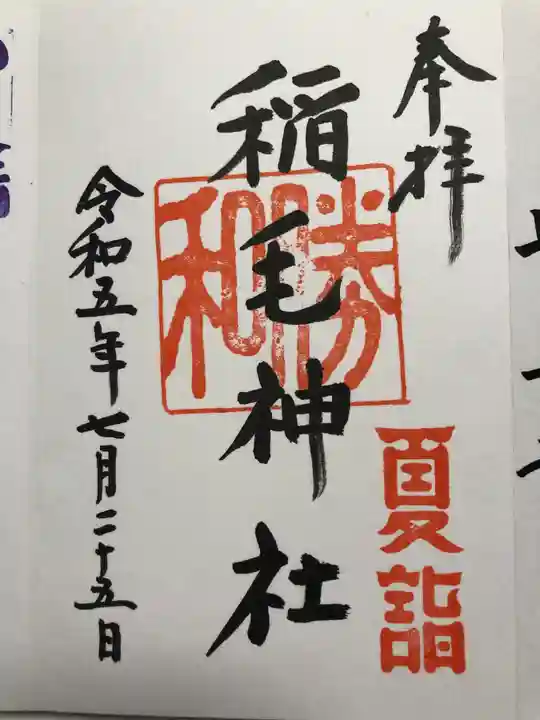 奉拝
夏詣
稲毛神社
勝和
令和五年七月二十五日